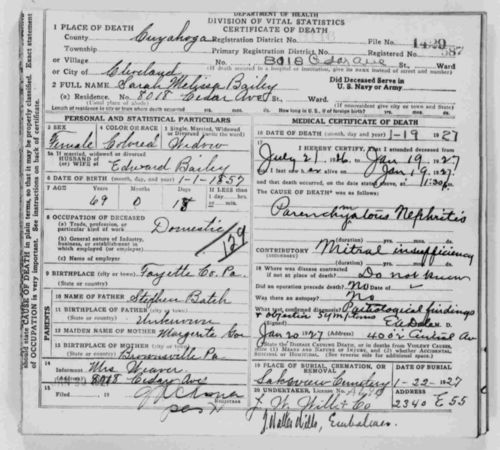 DEPARTMENT OF HEALTH
DIVISION OF VITAL STATISTICS
CERTIFICATE OF DEATH
1 PLACE OF DEATH
County Cuyahoga Registration District No. File No. 1420
Township Primary Registration District No. Registered No. 587
or Village No. 8018 Cedar Ave St., Ward
or City of Cleveland (If death occurred in a hospital or institution, give its NAME instead of street and number)
2 FULL NAME Sarah Melissa Bailey Did Deceased Serve in U. S. Navy or Army
(a) Residence. No. 8018 Cedar Ave St., Ward
(Usual place of abode) (If nonresident give city or town and State)
Length of residence in city or town where death occurred yrs. mos. ds. How long in U. S., if of foreign birth? yrs. mos. ds.
PERSONAL AND STATISTICAL PARTICULARS
3 SEX Female
4 COLOR OR RACE Colored
5 Single, Married, Widowed or Divorced (write the word) Widow
5a If married, widowed or divorced
HUSBAND of
(or) WIFE of Edward Bailey
6 DATE OF BIRTH (month, day, and year) 1-1-1857
7 AGE Years Months Days If LESS than 1 day, hrs. or min.
69 0 18
8 OCCUPATION OF DECEASED
(a) Trade, profession, or particular kind of work Domestic
(b) General nature of industry, business, or establishment in which employed (or employer)
(c) Name of employer
129
9 BIRTHPLACE (city or town) Fayette Co. Pa.
(State or country)
PARENTS
10 NAME OF FATHER Stephen Batch
11 BIRTHPLACE OF FATHER (city or town) Unknown
(State or country)
12 MAIDEN NAME OF MOTHER Margerite
13 BIRTHPLACE OF MOTHER (city or town)
(State or country) Brownsville Pa.
14 Informant Mrs Weaver
(Address) 8018 Cedar Ave
15 Filed , 19 Registrar
MEDICAL CERTIFICATE OF DEATH
16 DATE OF DEATH (month, day and year) 1-19 1927
17 I HEREBY CERTIFY, That I attended deceased from
July 21, 1926, to Jan 19, 1927
that I last saw her alive on Jan 19, 1927
and that death occurred, on the date stated above, at 1:30 m.
The CAUSE OF DEATH* was as follows:
Parenchymatous Nephritis
(duration) yrs. mos. ds.
CONTRIBUTORY Mitral insufficiency
(duration) yrs. mos. ds.
18 Where was disease contracted
if not at place of death? Do not know
Did an operation precede death? No Date of
Was there an autopsy? No
What test confirmed diagnosis? Pathological findings
M. D.
Jan 20 1927 (Address) Central Av
*State the DISEASE CAUSING DEATH, or in deaths from VIOLENT CAUSES, state (1) MEANS AND NATURE OF INJURY, and (2) whether ACCIDENTAL, SUICIDAL or HOMICIDAL. (See reverse side for additional space.)
19 PLACE OF BURIAL, CREMATION, OR REMOVAL DATE OF BURIAL
Lakeview Cemetery 1-22-1927
20 UNDERTAKER, License No. ADDRESS
J. W. Wills & Co 2340 E 55
J Walter Wills, Embalmer.